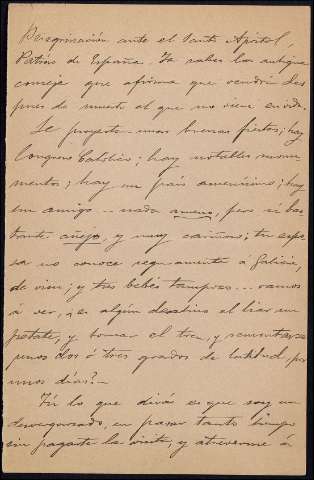 Peregrinación ante el Santo Apóstol,
Patrón de España. Ya sabes la antigua
conseja que afirma que vendrá des
pues de muerto el que no viene en vida.
Se proyectan unas buenas fiestas; hay
Congreso Católico; hay notables monu
mentos; hay un país amenísimo; hay
un amigo... nada ameno, pero si bas
tante añejo, y muy cariñoso; tu espo
sa no conoce seguramente á Galicia,
de visu; y tres bebés tampoco... vamos
á ver, ¿es algún desatino el liar un
petate, y tomar el tren, y remontarse
unos dos ó tres grados de latitud, por
unos días?—
Tú lo que dirás es que soy un
desvergonzado, en pasar tanto tiempo
sin pagarte la visita, y atreverme á